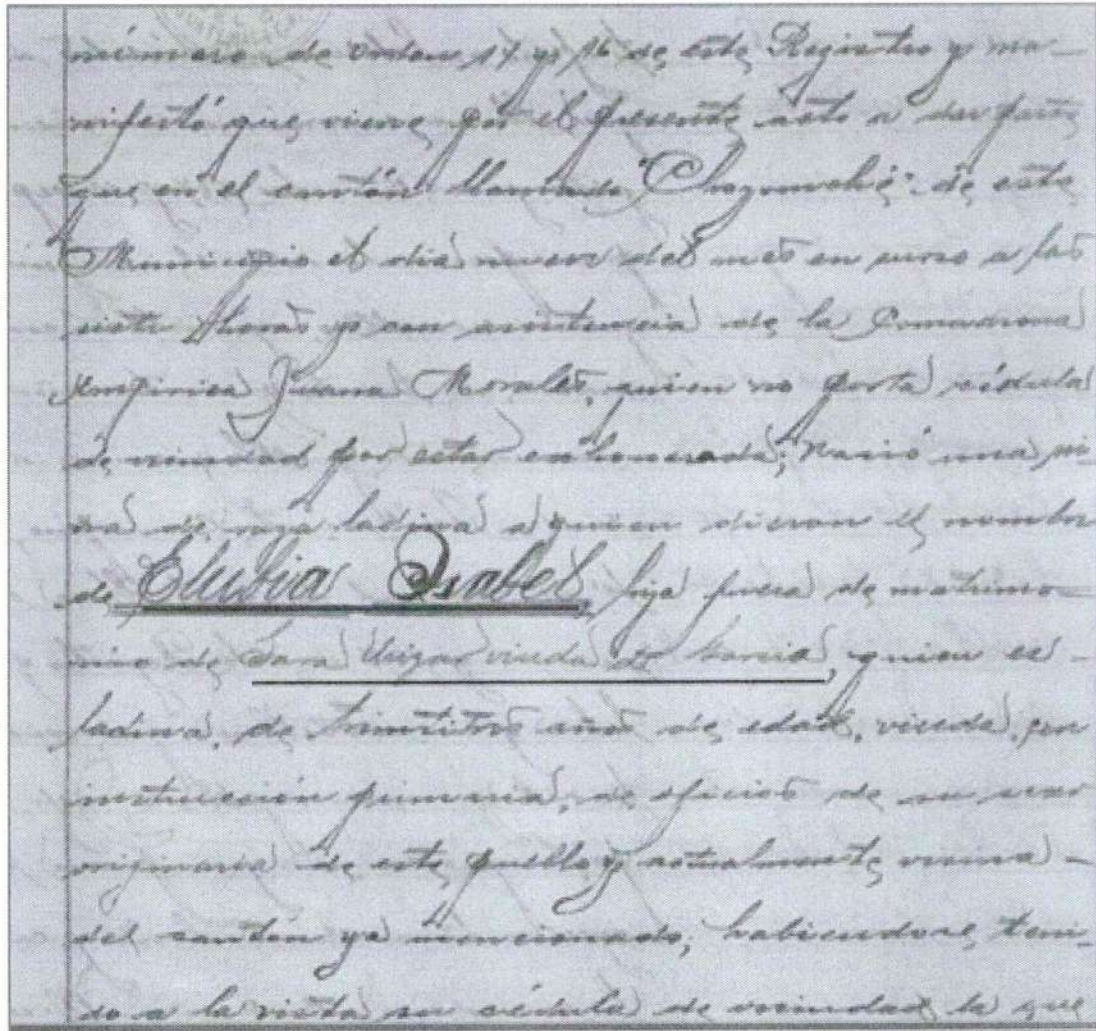 número de orden 17 y 16 de este Registro y ma-
nifestó que viene por el presente acto a dar parte
que en el cantón llamado de este
Municipio el día nueve del mes en curso a las
siete horas y con asistencia de la Comadrona
Empírica Juana Morales, quien no porta cédula
de vecindad por estar exhonerada; nació una ni-
ña de raza ladina a quien dieron el nombre
de Elubia Isabel, hija fuera de matrimo-
nio de Sara viuda de García, quien es -
ladina, de treintitres años de edad, viuda, con
instrucción primaria, de oficios de su sexo
originaria de este pueblo y actualmente vecina -
del cantón ya mencionado; habiendose teni-
do a la vista su cédula de vecindad la que